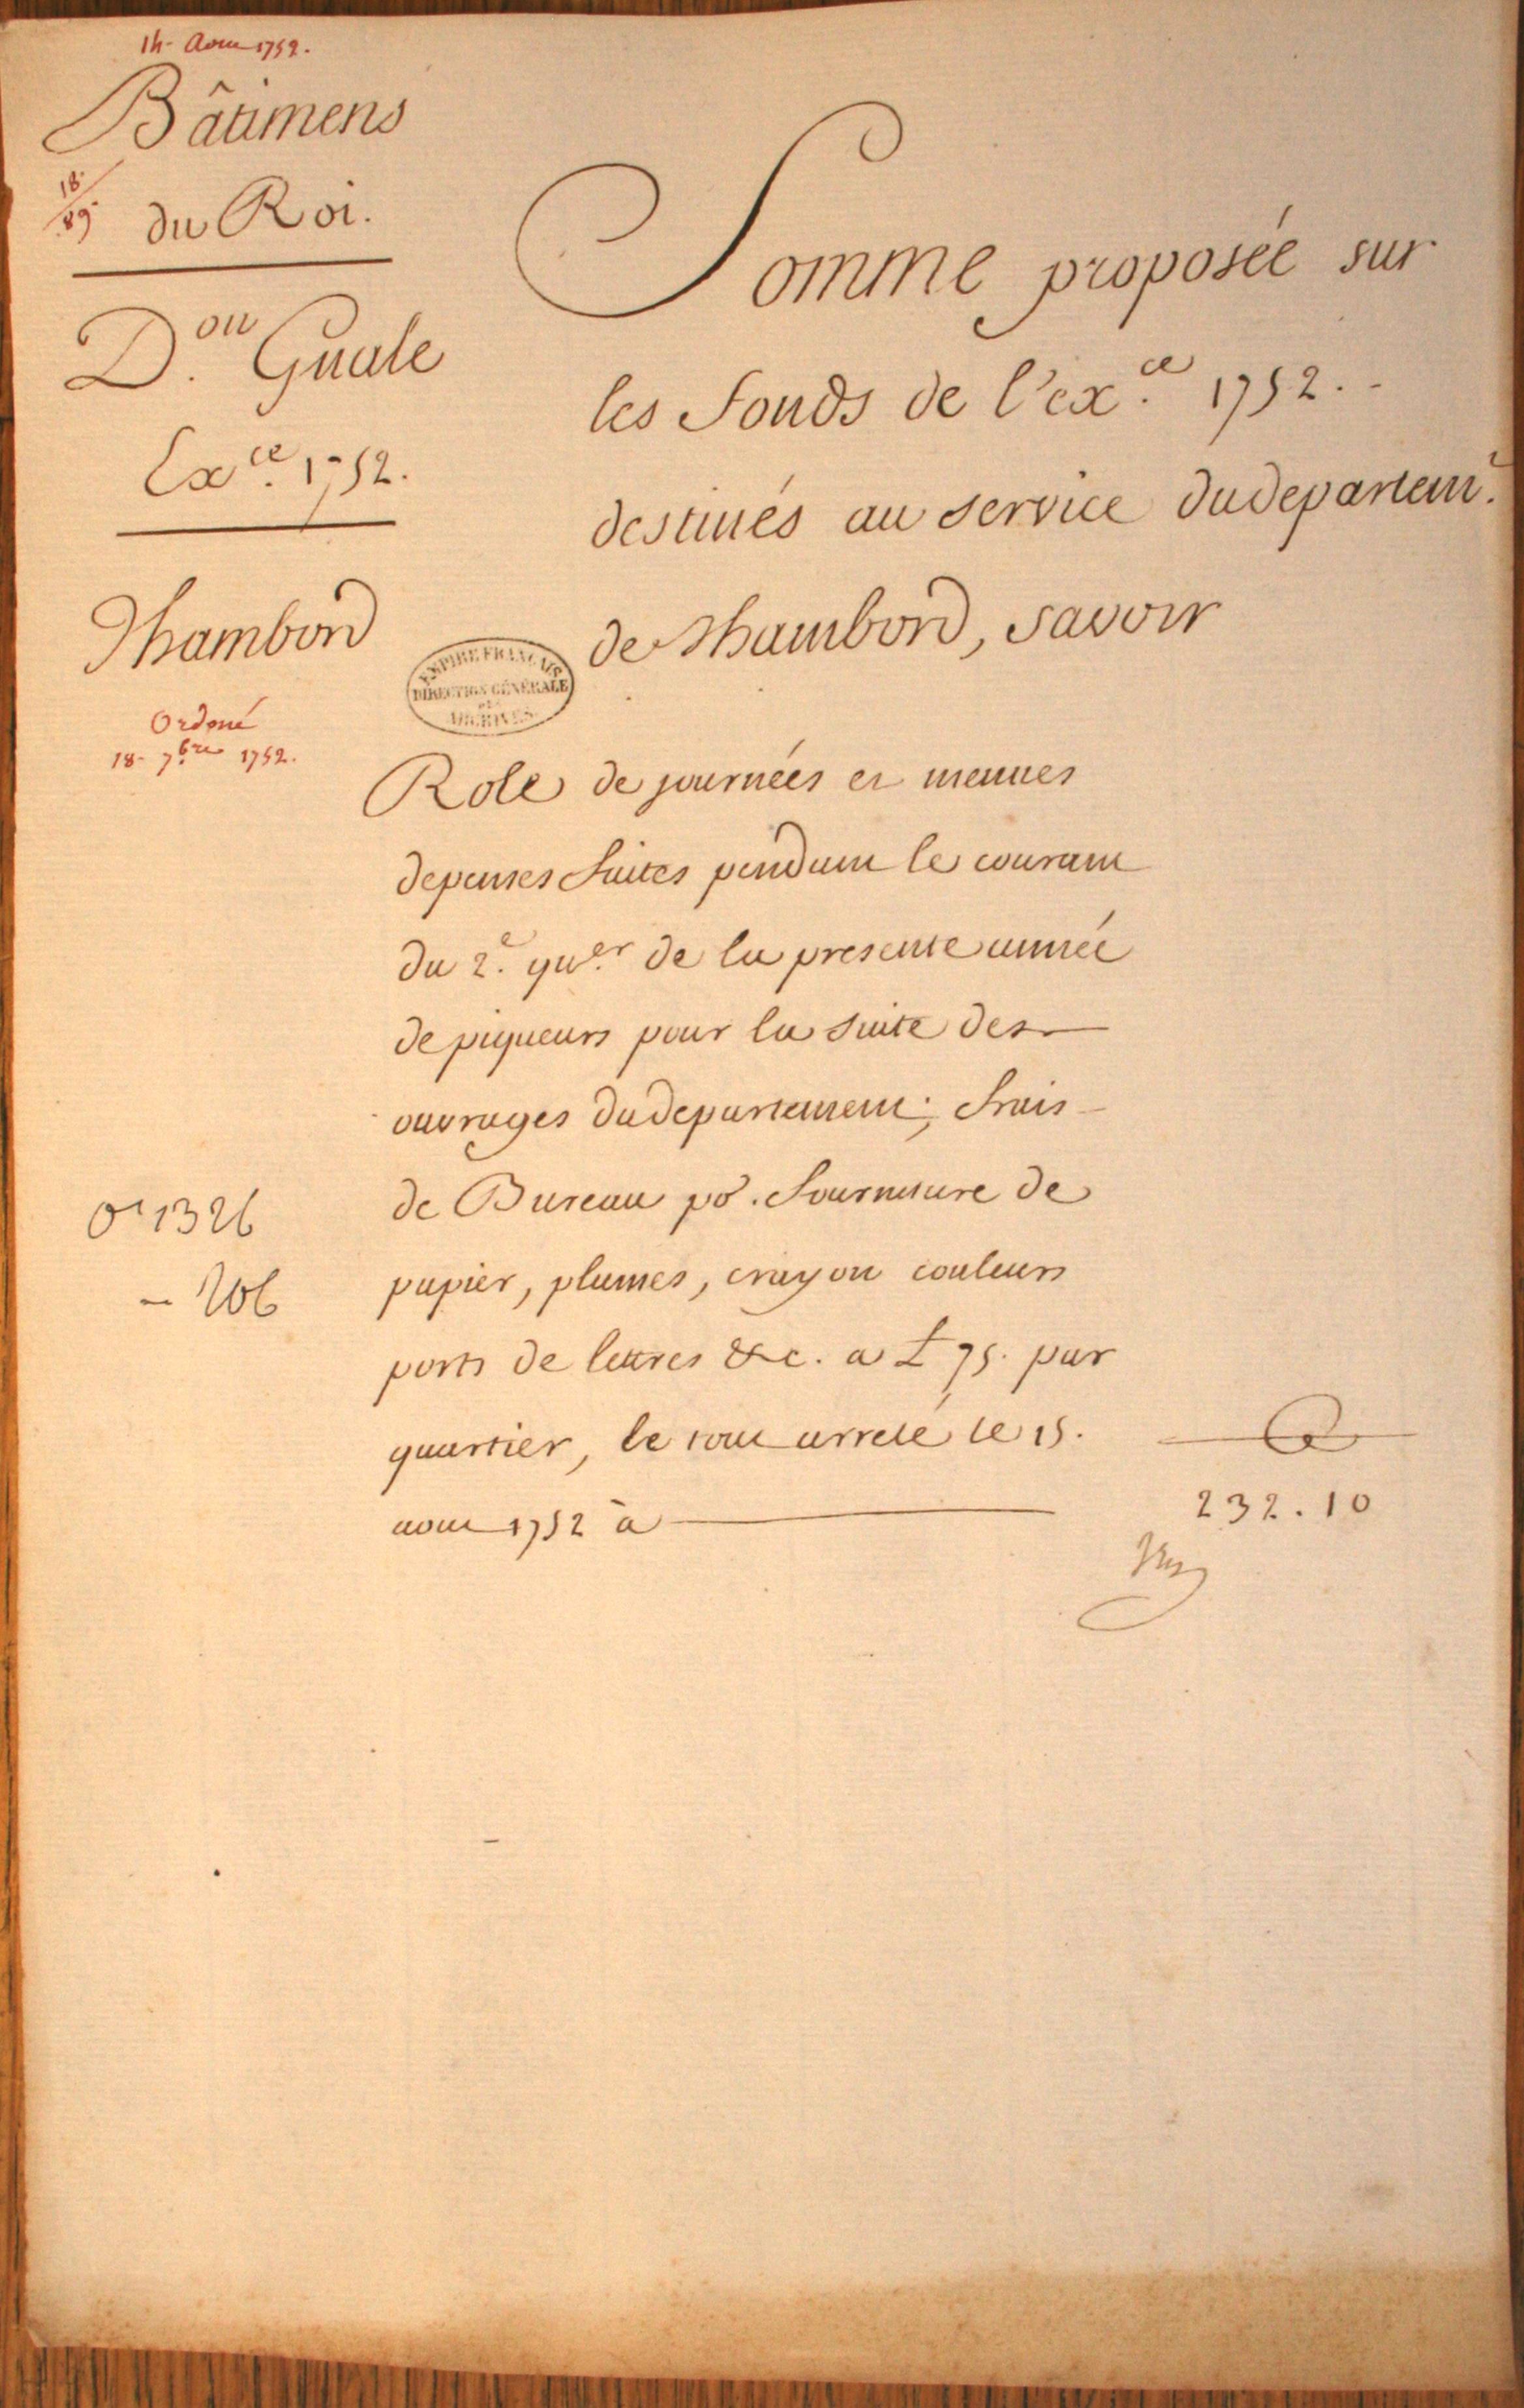 14. Aout 1752.
Bâtimens
18.
89.
du Roi.
D.on Gnale
Ex.ce 1752.
Chambord
Ordoné
18. 7bre 1752.
O1 1326
- 206
Somme proposée sur
les fonds de l'ex.ce 1752.
destinés au service dudepartem.t
de Chambord, savoir
EMPIRE FRANÇAIS
DIRECTION GÉNÉRALE
DES
ARCHIVES
Role de journées et menues
depenses faites pendant le courant
du 2.e qu.er de la presente année
de piqueurs pour la suite des
ouvrages dudepartement; frais
de Bureau po. fourniture de
papier, plumes, crayon couleurs
ports de lettres &c. a £ 75. par
quartier, le tout arreté le 15.
aout 1752 à
232.10